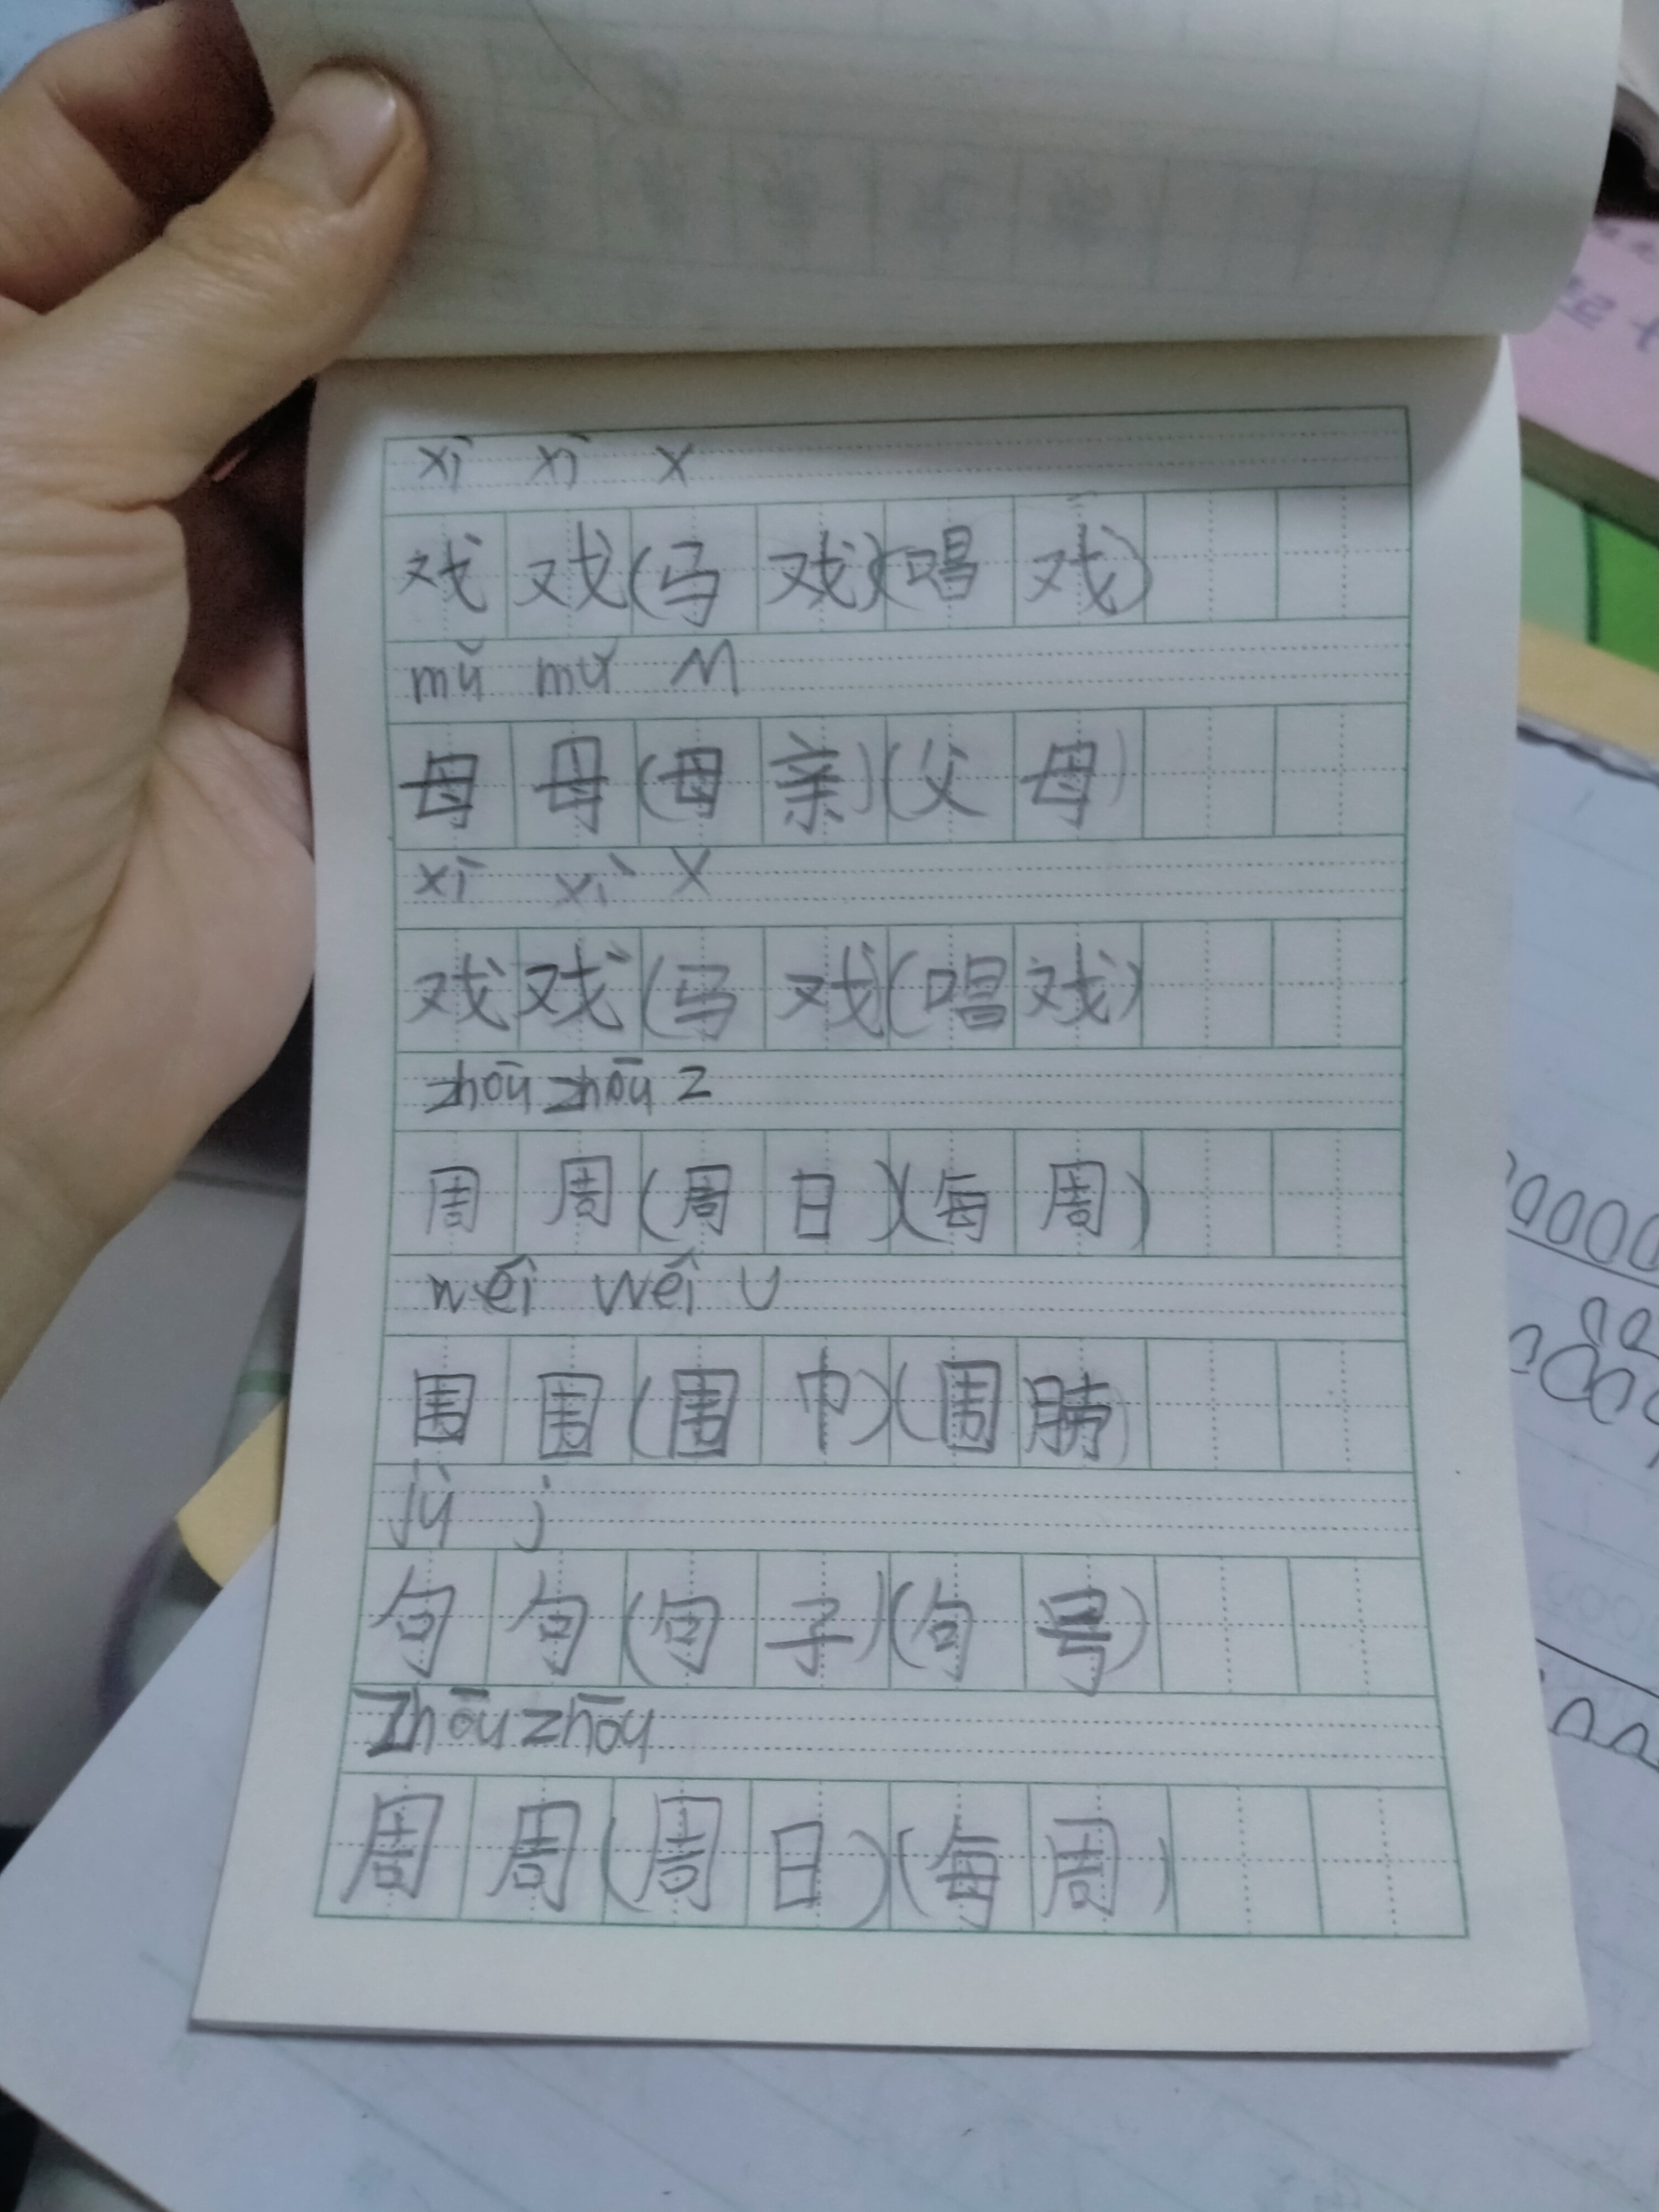 xì xì x
戏戏(马戏)(唱戏)
mǔ mǔ M
母母(母亲)(父母)
xì xì x
戏戏(马戏(唱戏)
zhōu zhōu z
周周(周日)(每周)
wéi wéi U
围围(围巾)(围脖)
jù j
句句(句子)(句号)
zhōu zhōu
周周(周日)(每周)